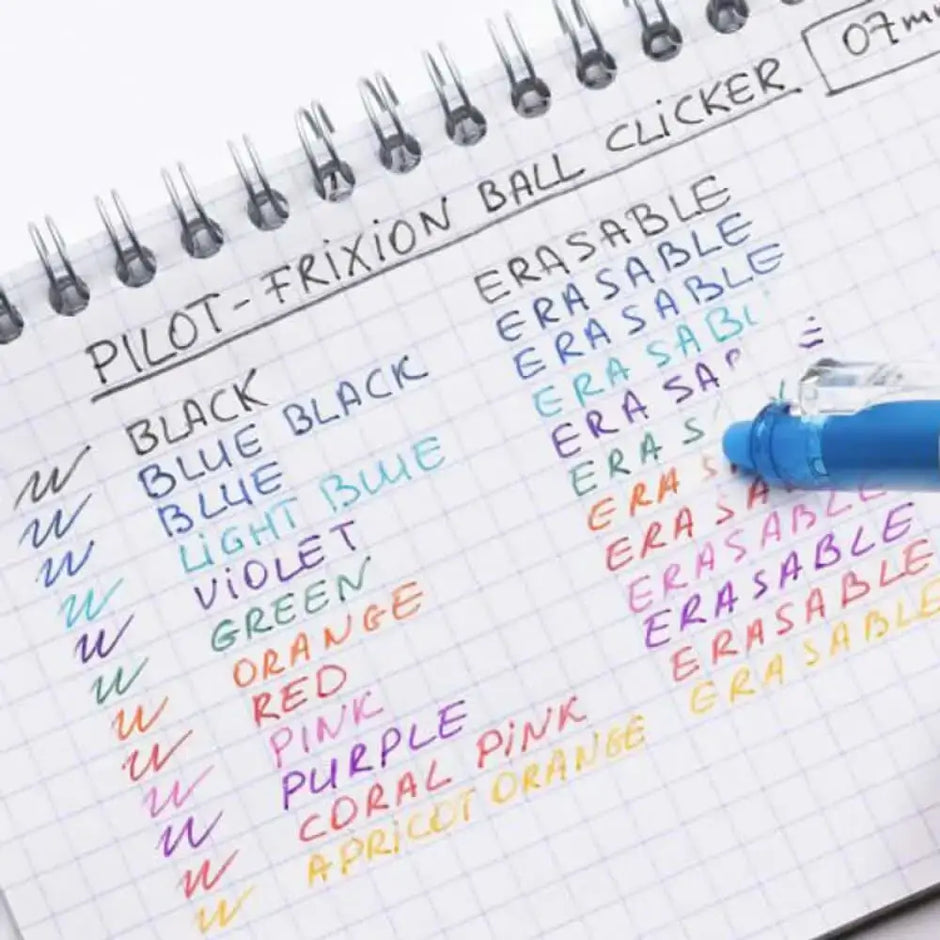 PILOT-FRIXION BALL CLICKER 07m
BLACK ERASABLE
BLUE BLACK ERASABLE
BLUE ERASABLE
LIGHT BLUE ERASABL
VIOLET ERASA
GREEN ERAS
ORANGE ERAS
RED ERASA
PINK ERASABLE
PURPLE ERASABLE
CORAL PINK ERASABLE
APRICOT ORANGE ERASABLE